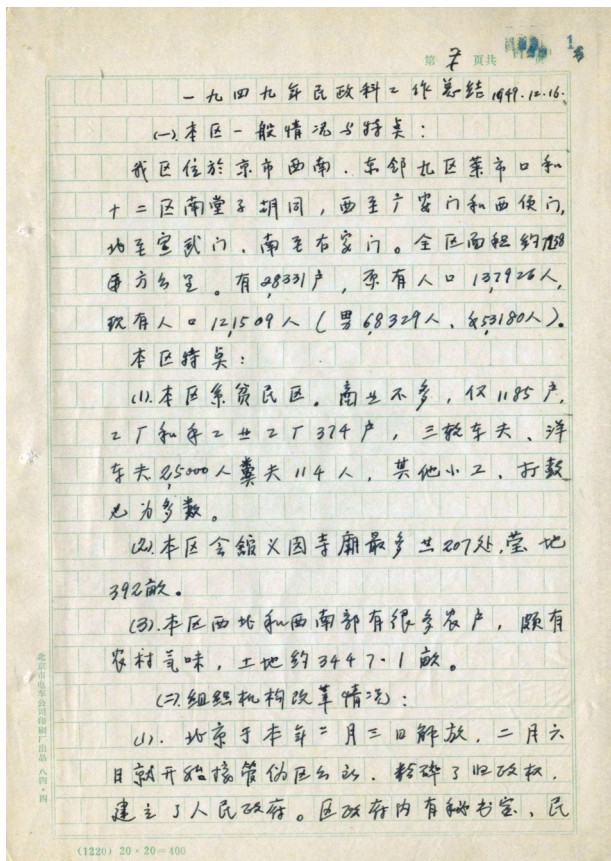 第 页共
一九四九年民政科工作总结 1949.12.16.
(一).本区一般情况与特点:
我区位於京市西南.东邻九区菜市口和
十二区南堂子胡同,西至广安门和西便门,
北至宣武门、南至右安门。全区面积约7.938
平方公里。有28331户,原有人口137,926人,
现有人口121,509人(男68,329人、女53180人)。
本区特点:
(1).本区系贫民区。商业不多,仅1185户,
工厂和手工业工厂374户,三轮车夫、洋
车夫25,000人粪夫114人,其他小工、打鼓
也为多数。
(2).本区会馆义园寺庙最多共207处,茔地
392亩。
(3).本区西北和西南部有很多农户,颇有
农村气味,土地约3447.1亩。
(二).组织机构改革情况:
(1).北京于本年二月三日解放,二月六
日就开始接管伪区公所、粉碎了旧政权,
建立了人民政府。区政府内有秘书室、民
北京市电车公司印刷厂出品 八四·四
(1220) 20×20=400